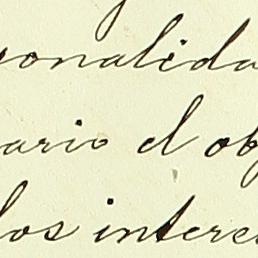 sonalida
ario el ob
los intere